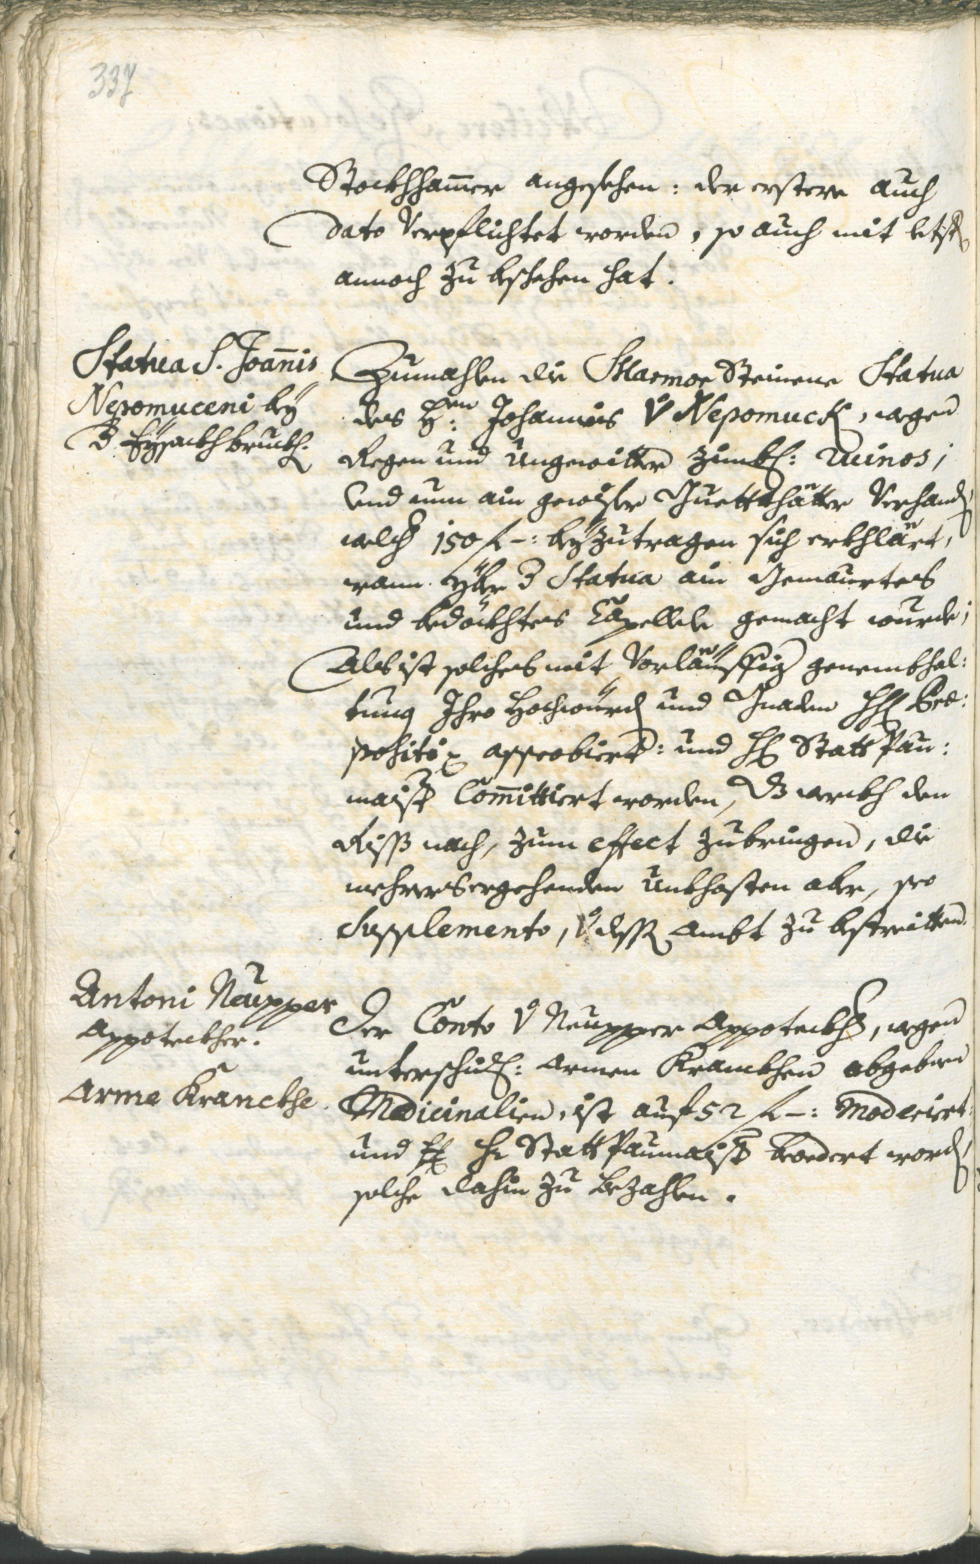 337
Stockhhamer angesehen: der erstere auch
Dato Verpflichtet worden, so auch mit letst
annoch zu beschehen hat.
Statua S. Joannis
Nepomuceni bey
der Eysackhbruckh.
Zumahlen die Marmor Steinene Statua
des H:en Johannis v Nepomuck, wegen
Regen und Ungewitter zimbl: ruinos,
und nun ain gewisser Guetthätter Verhand,
welch 150 f –: beyzutragen sich erkhlärt,
wann yber der Statua ain Gemaurtes
und bedöckhtes Capellele gemacht wurde;
Als ist solches mit Vorläuffig genembhal:
tung Ihro Hochwürd und Gnaden Pro:
positi approbiert: und H Statt Pau:
maister Committiert worden, das werckh den
Riss nach, zum effect zubringen, die
mehrers ergehenden Unkhosten aber, pro
Supplemento, v dess Ambt zu bestreitten.
Antoni Neupper
Appoteckher.
Arme Kranckhe.
Der Conto v Neupper Appoteckher, wegen
unterschidl: armen Kranckhen abgeben
Medicinalien, ist auf 52 f –: moderiert,
und H Statt Paumaister beordert word,
solche dahin zu bezahlen.